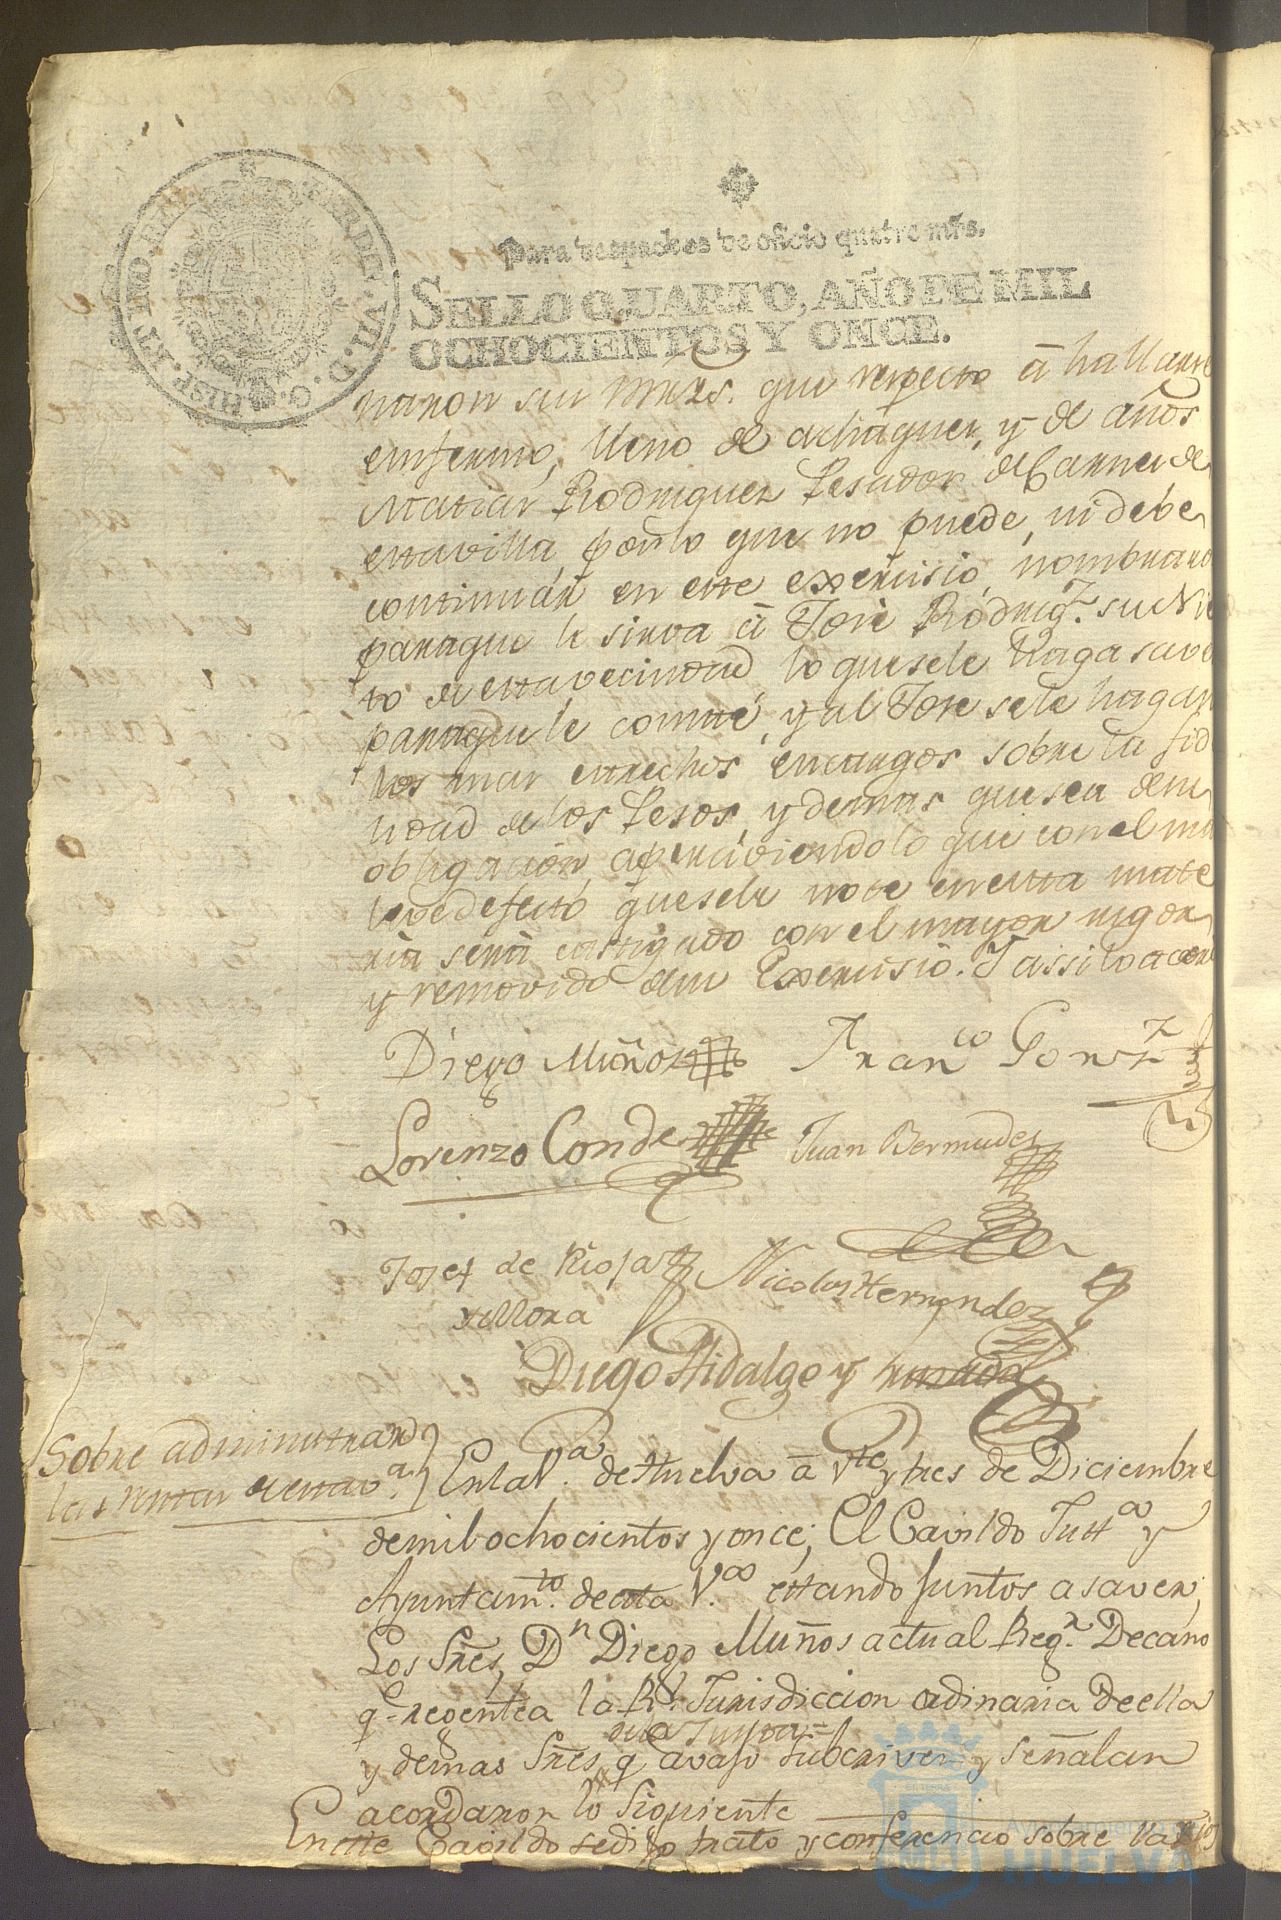 Para despachos de oficio quatro mrs.
SELLO QUARTO, AÑO DE MIL
OCHOCIENTOS Y ONCE.
naron sus mrzs. que respecto á hallarse
enfermo, lleno de achaques, y de años
Matias Rodriguez Pesador de Carnes de
esta villa, por lo que no puede, ni debe
continuar en este exercisio, nombraro
paraque le sirva á Jose Rodrig.z su Nie
to de esta vecindad lo quesele haga save
paraque le conste, y al Jose sele hagan
los mas estrechos encargos sobre la fid
lidad de los Pesos, y demas quesea desu
obligacion, aperciviendolo que con el ma
leve defecto quesele note en esta mate
ria será castigado con el mayor rigor
y removido desu Exercisio. Y assi lo acor
Diego Muñoz Fran.co Gonz.z
Lorenzo Conde Juan Bermudez
Josef de Rioja Nicolas Hernandez
y Mora
Diego Hidalgo y
Sobre administrar
las rentas de esta v.a
En la V.a de Huelva á Vte y tres de Diciembre
demil ochocientos y once; El Cavildo Just.a y
Ayuntam.to de esta V.a estando juntos a saver;
Los Sres, D.n Diego Muños actual Reg.r Decano
q.e regentea la R.l Jurisdiccion ordinaria de ella
y demas Sres q.e avajo subcriven y señalan
acordaron lo siguiente
En este Cavildo sedijo trato y conferencio sobre
Ayuntamiento de
HUELVA